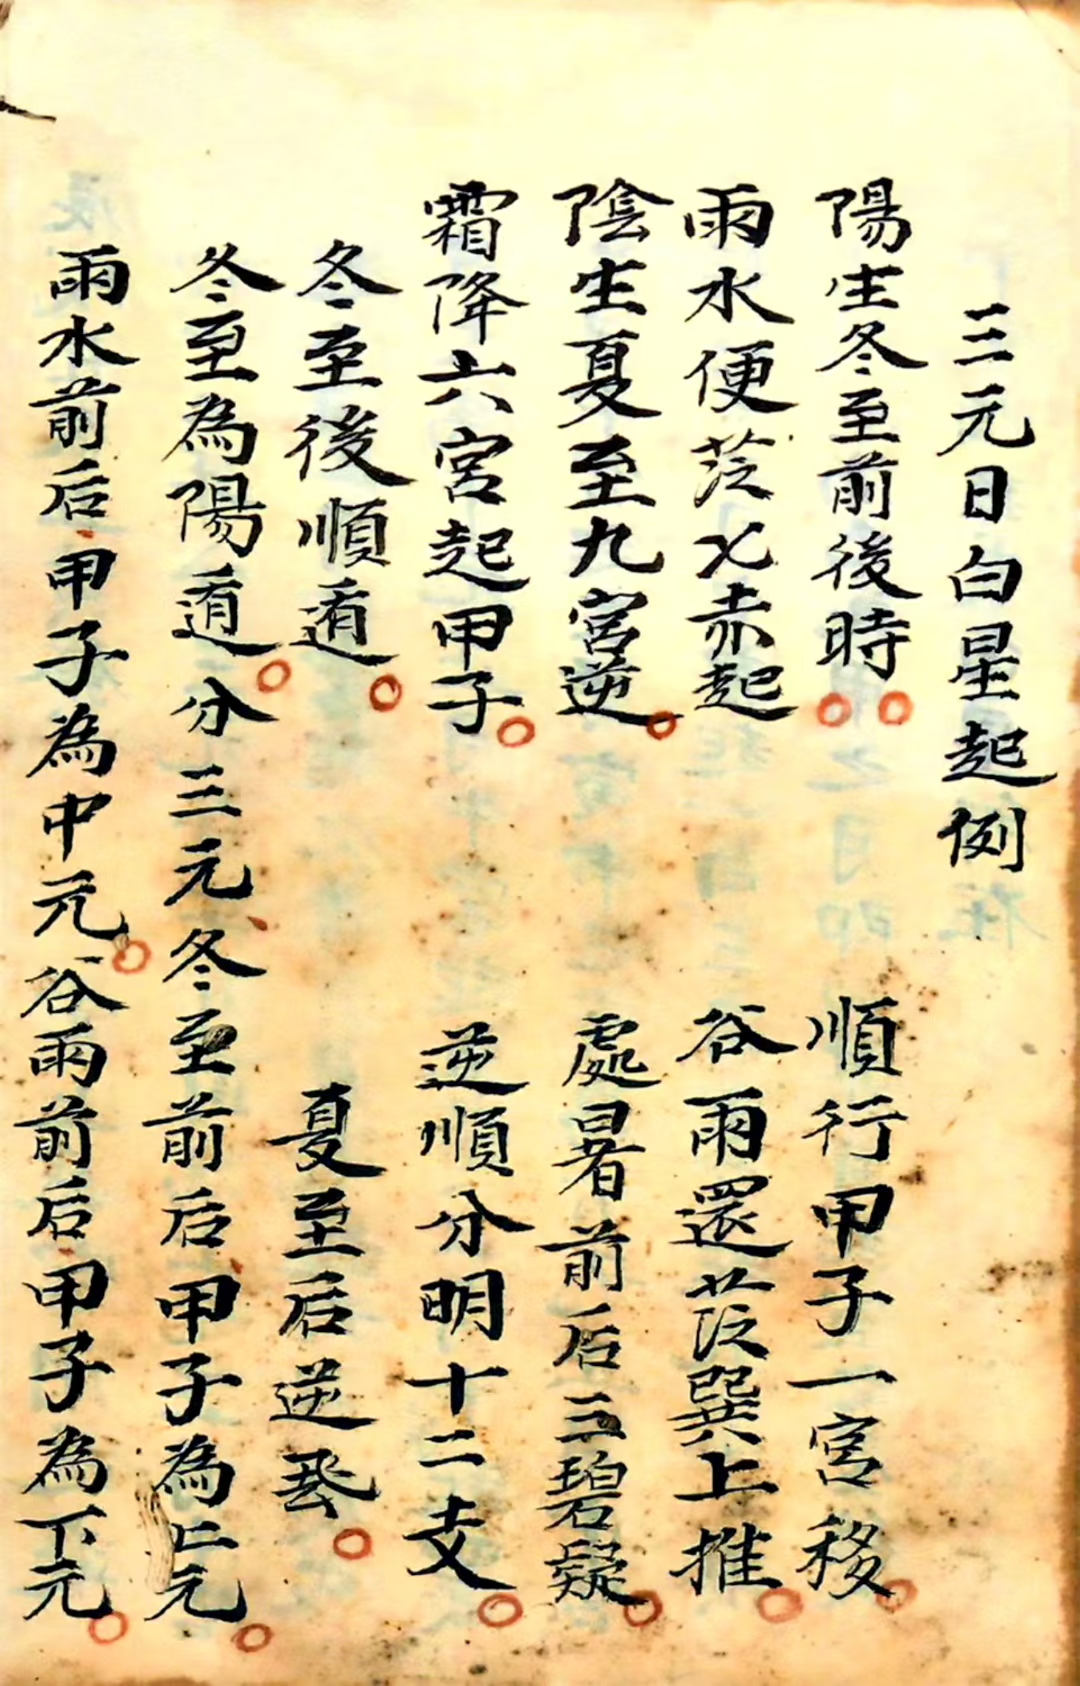 三元日白星起例
陽生冬至前後時 順行甲子一宮移
雨水便茫七赤起 谷雨還茫巽上推
陰生夏至九宮逆 處暑前后三碧疑
霜降六宮起甲子 逆順分明十二支
冬至後順遁 夏至后逆
冬至為陽遁分三元冬至前后甲子為上元
雨水前后甲子為中元谷雨前后甲子為下元